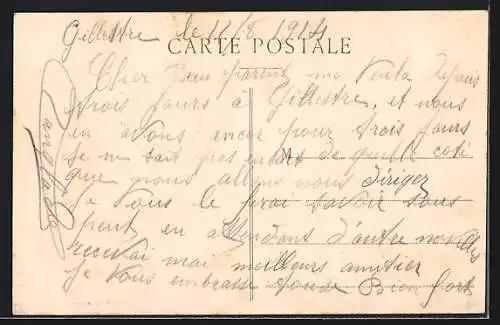 Gillestre le 11/8 1914
CARTE POSTALE
Cher Bien parent me voila depuis
trois jours à Gillestre, et nous
en avons encor pour trois jours
Je ne sait pas encore de quelle coté
M
que nous allons nous diriger
Je vous le ferai savoir sous
peut en attendans d'autre nouvelles
recevai mai meilleurs amitier
Je vous embrasse tous Bien fort